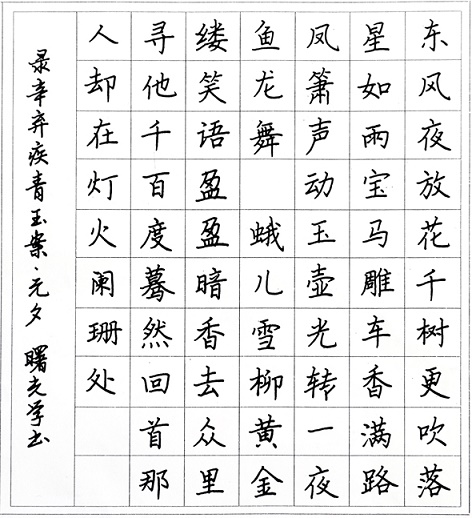 东风夜放花千树更吹落
星如雨宝马雕车香满路
凤箫声动玉壶光转一夜
鱼龙舞 蛾儿雪柳黄金
缕笑语盈盈暗香去众里
寻他千百度蓦然回首那
人却在灯火阑珊处
录辛弃疾青玉案·元夕 曙光学书